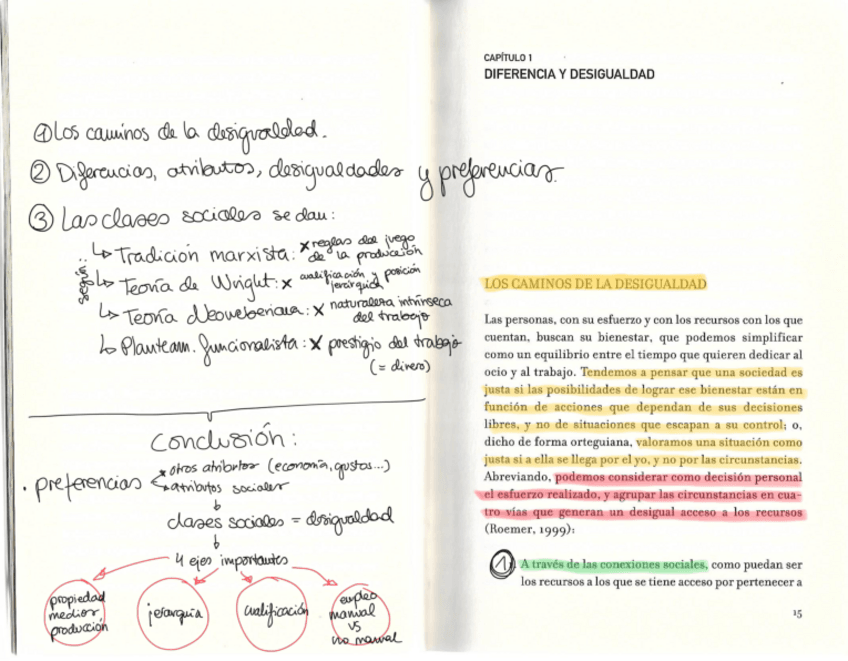 ① Los caminos de la desigualdad.
② Diferencias, atributos, desigualdades y preferencias.
③ Las clases sociales se dan:
según
↳ Tradición marxista: x reglas del juego de la producción
↳ Teoría de Wright: x cualificación y posición jerárquica
↳ Teoría Neoweberiana: x naturaleza intrínseca del trabajo
↳ Planteam. funcionalista: x prestigio del trabajo
(= dinero)
Conclusión:
. preferencias
x otros atributos (economía, gustos...)
x atributos sociales
clases sociales = desigualdad
4 ejes importantes
propiedad
medios
producción
jerarquía
cualificación
empleo
manual
vs
no manual
CAPÍTULO 1
DIFERENCIA Y DESIGUALDAD
LOS CAMINOS DE LA DESIGUALDAD
Las personas, con su esfuerzo y con los recursos con los que
cuentan, buscan su bienestar, que podemos simplificar
como un equilibrio entre el tiempo que quieren dedicar al
ocio y al trabajo. Tendemos a pensar que una sociedad es
justa si las posibilidades de lograr ese bienestar están en
función de acciones que dependan de sus decisiones
libres, y no de situaciones que escapan a su control; o,
dicho de forma orteguiana, valoramos una situación como
justa si a ella se llega por el yo, y no por las circunstancias.
Abreviando, podemos considerar como decisión personal
el esfuerzo realizado, y agrupar las circunstancias en cua-
tro vías que generan un desigual acceso a los recursos
(Roemer, 1999):
① A través de las conexiones sociales, como puedan ser
los recursos a los que se tiene acceso por pertenecer a
15